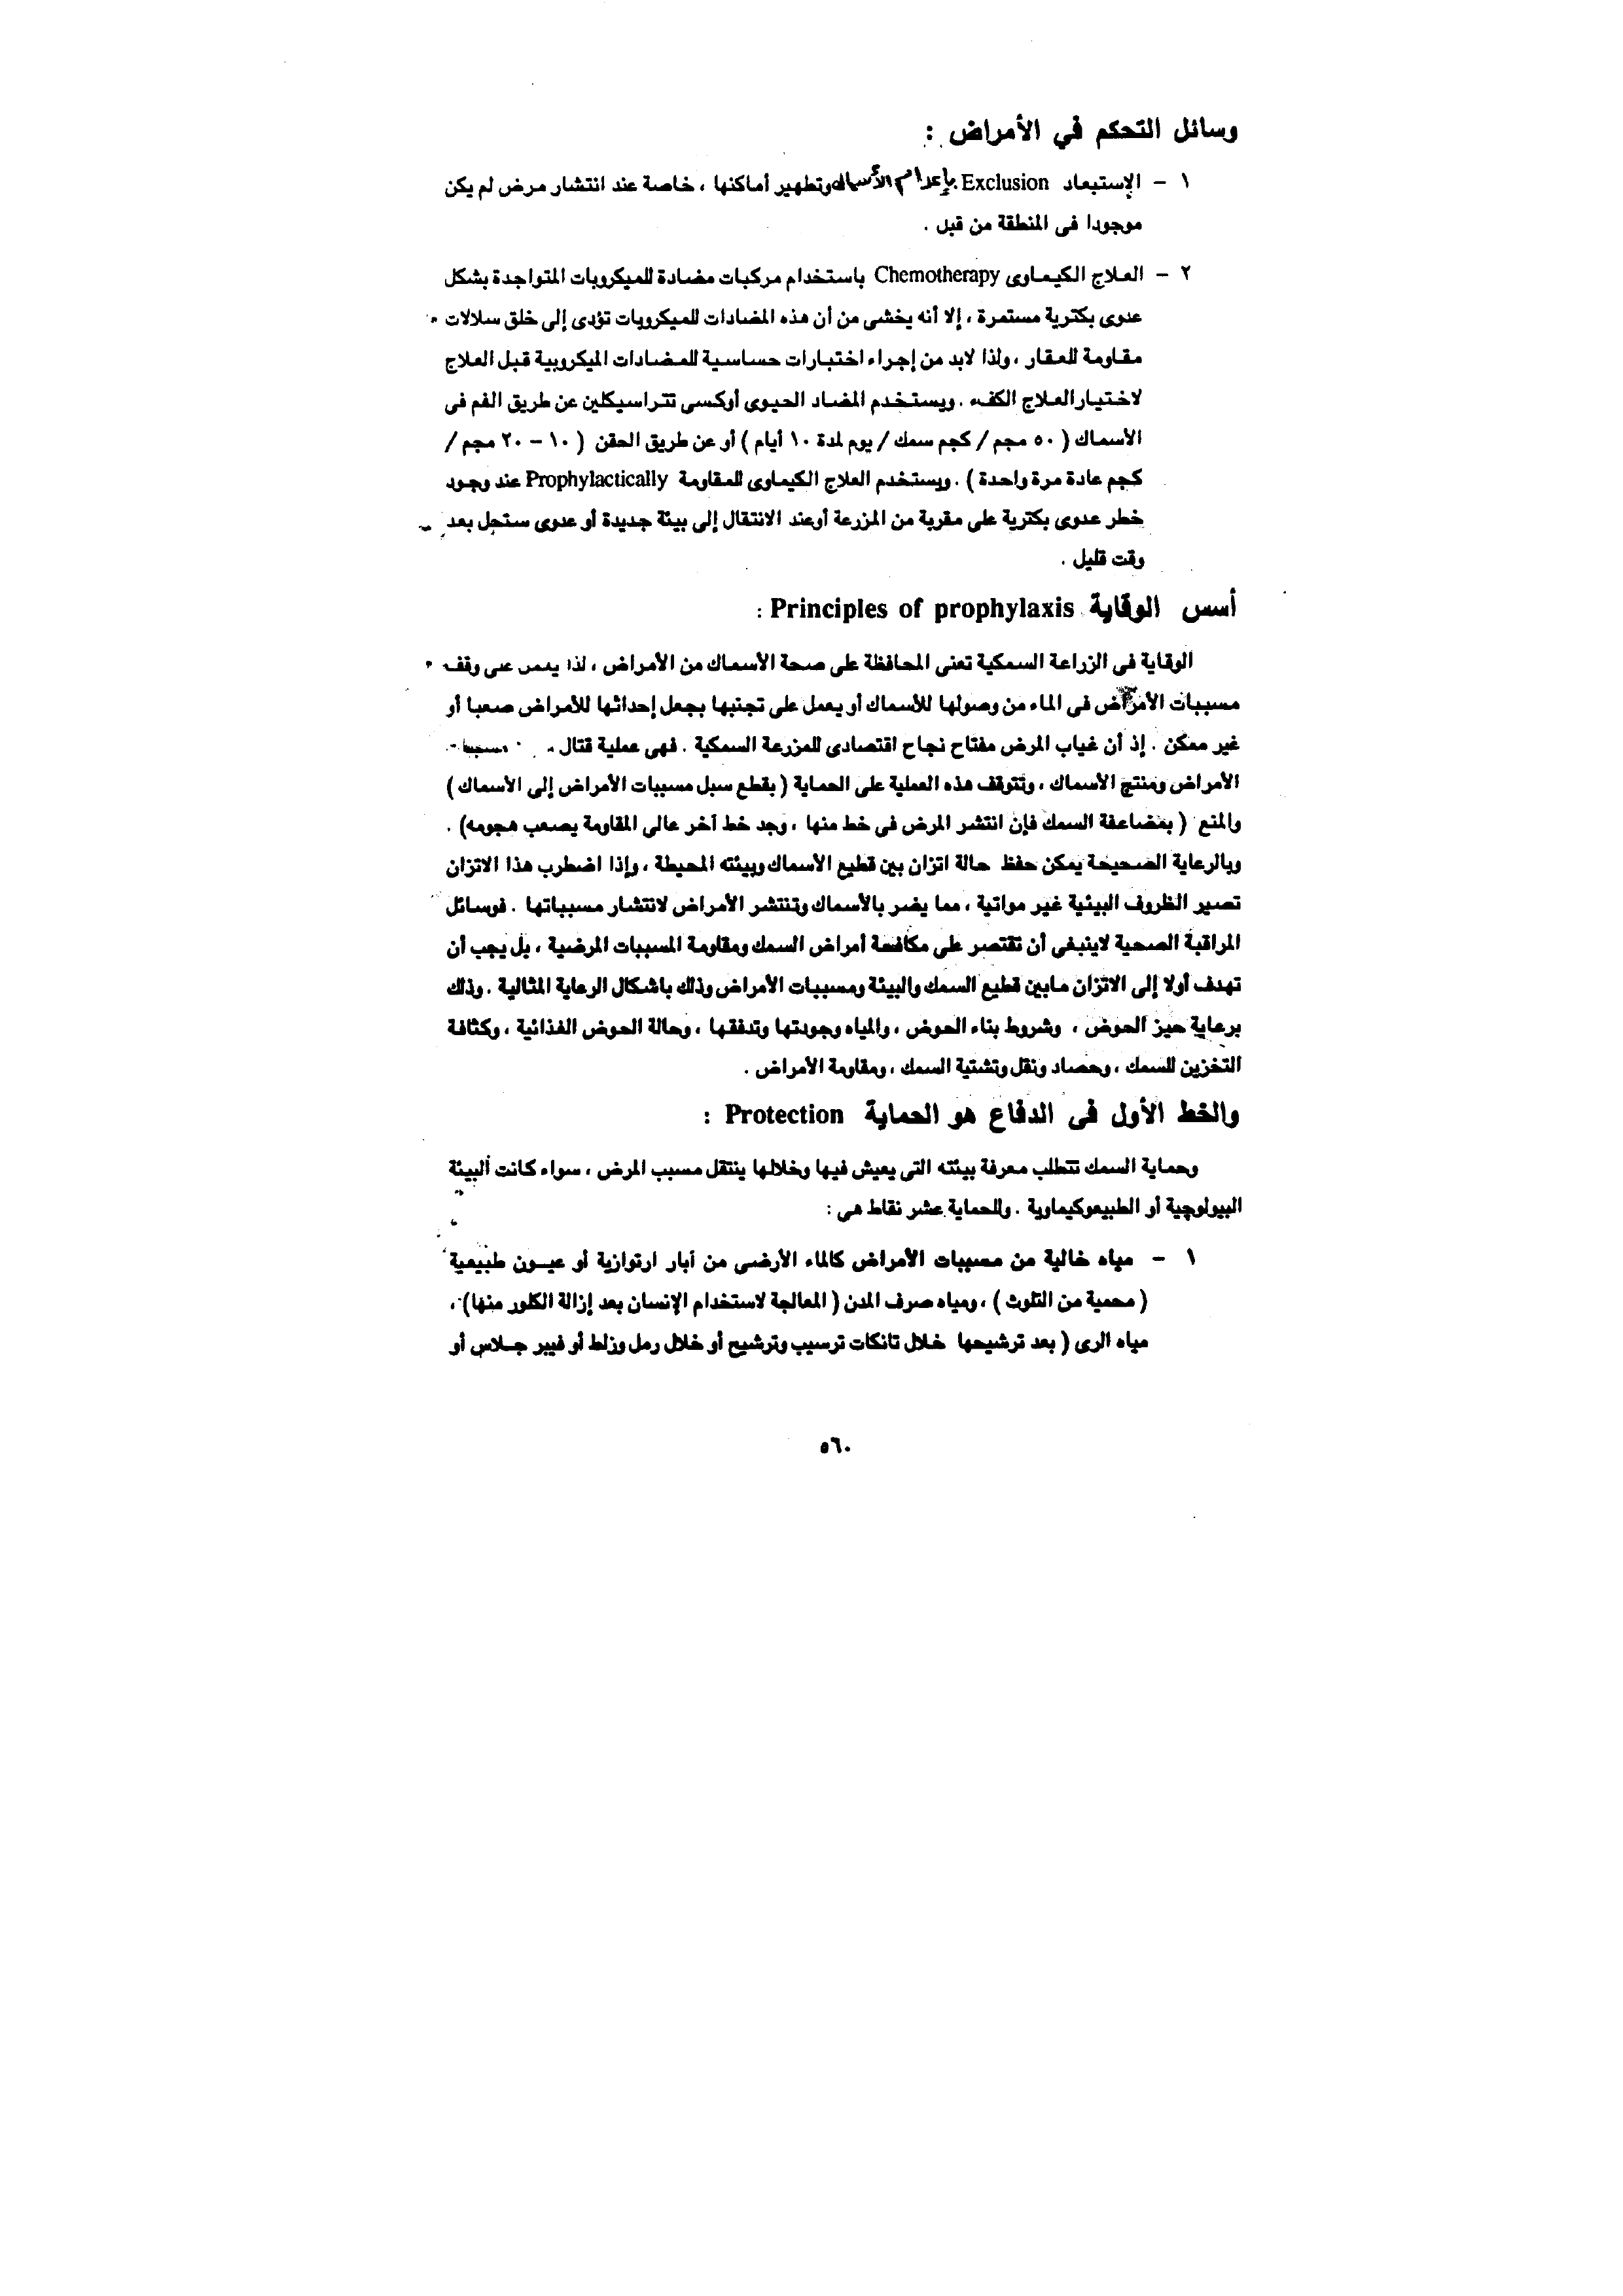 وسائل التحكم في الأمراض :
١ - الإستبعاد Exclusion بإعدام الأسماك وتطهير أماكنها ، خاصة عند انتشار مرض لم يكن
موجودا فى المنطقة من قبل .
٢ - العلاج الكيماوى Chemotherapy باستخدام مركبات مضادة للميكروبات المتواجدة بشكل
عدوى بكترية مستمرة ، إلا أنه يخشى من أن هذه المضادات للميكروبات تؤدى إلى خلق سلالات
مقاومة للعقار ، ولذا لابد من إجراء اختبارات حساسية للمضادات الميكروبية قبل العلاج
لاختيار العلاج الكفء . ويستخدم المضاد الحيوى أوكسى تتراسيكلين عن طريق الفم فى
الأسماك ( ٥٠ مجم / كجم سمك / يوم لمدة ١٠ أيام ) أو عن طريق الحقن ( ١٠ - ٢٠ مجم /
كجم عادة مرة واحدة ) . ويستخدم العلاج الكيماوى للمقاومة Prophylactically عند وجود
خطر عدوى بكترية على مقربة من المزرعة أوعند الانتقال إلى بيئة جديدة أو عدوى ستحل بعد
وقت قليل .
أسس الوقاية Principles of prophylaxis :
الوقاية فى الزراعة السمكية تعنى المحافظة على صحة الأسماك من الأمراض ، لذا يعمل على وقف
مسببات الأمراض فى الماء من وصولها للأسماك أو يعمل على تجنبها بجعل إحداثها للأمراض صعبا أو
غير ممكن . إذ أن غياب المرض مفتاح نجاح اقتصادى للمزرعة السمكية . فهى عملية قتال مسببات
الأمراض ومنتج الأسماك ، وتتوقف هذه العملية على الحماية ( بقطع سبل مسببات الأمراض إلى الأسماك )
والمنع ( بمضاعفة السمك فإن انتشر المرض فى خط منها ، وجد خط آخر عالى المقاومة يصعب هجومه) .
وبالرعاية الصحيحة يمكن حفظ حالة اتزان بين قطيع الأسماك وبيئته المحيطة ، وإذا اضطرب هذا الاتزان
تصير الظروف البيئية غير مواتية ، مما يضر بالأسماك وتنتشر الأمراض لانتشار مسبباتها . فوسائل
المراقبة الصحية لاينبغى أن تقتصر على مكافحة أمراض السمك ومقاومة المسببات المرضية ، بل يجب أن
تهدف أولا إلى الاتزان مابين قطيع السمك والبيئة ومسببات الأمراض وذلك باشكال الرعاية المثالية . وذلك
برعاية حيز الحوض ، وشروط بناء الحوض ، والمياه وجودتها وتدفقها ، وحالة الحوض الغذائية ، وكثافة
التخزين للسمك ، وحصاد ونقل وتشتية السمك ، ومقاومة الأمراض .
والخط الأول فى الدفاع هو الحماية Protection :
وحماية السمك تتطلب معرفة بيئته التى يعيش فيها وخلالها ينتقل مسبب المرض ، سواء كانت البيئة
البيولوچية أو الطبيعوكيماوية . وللحماية عشر نقاط هى :
١ - مياه خالية من مسببات الأمراض كالماء الأرضى من آبار ارتوازية أو عيون طبيعية
( محمية من التلوث ) ، ومياه صرف المدن ( المعالجة لاستخدام الإنسان بعد إزالة الكلور منها) ،
مياه الرى ( بعد ترشيحها خلال تانكات ترسيب وترشيح أو خلال رمل وزلط أو فيبر جلاس أو
٥٦٠